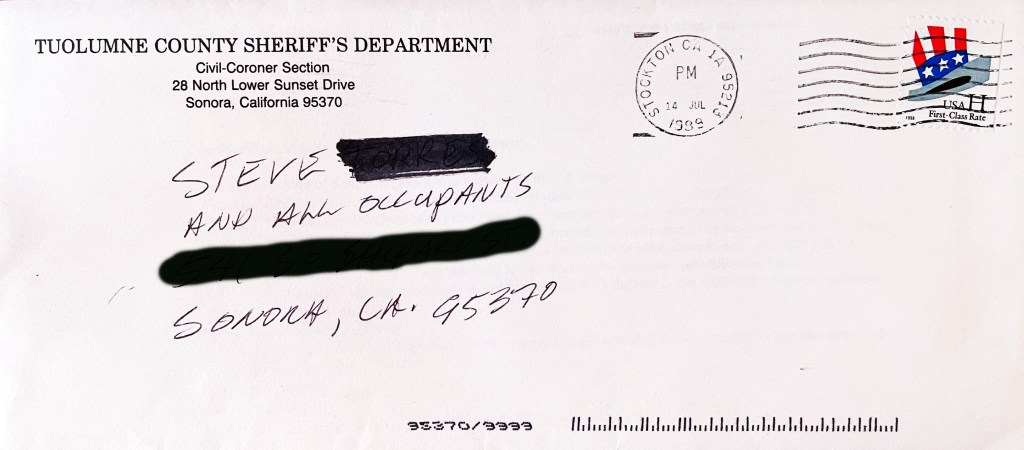 TUOLUMNE COUNTY SHERIFF'S DEPARTMENT
Civil-Coroner Section
28 North Lower Sunset Drive
Sonora, California 95370
STOCKTON CA 1A 95213
PM
14 JUL
1999
USA H
First-Class Rate
1998
STEVE
AND ALL OCCUPANTS
SONORA, CA. 95370
95370/9999